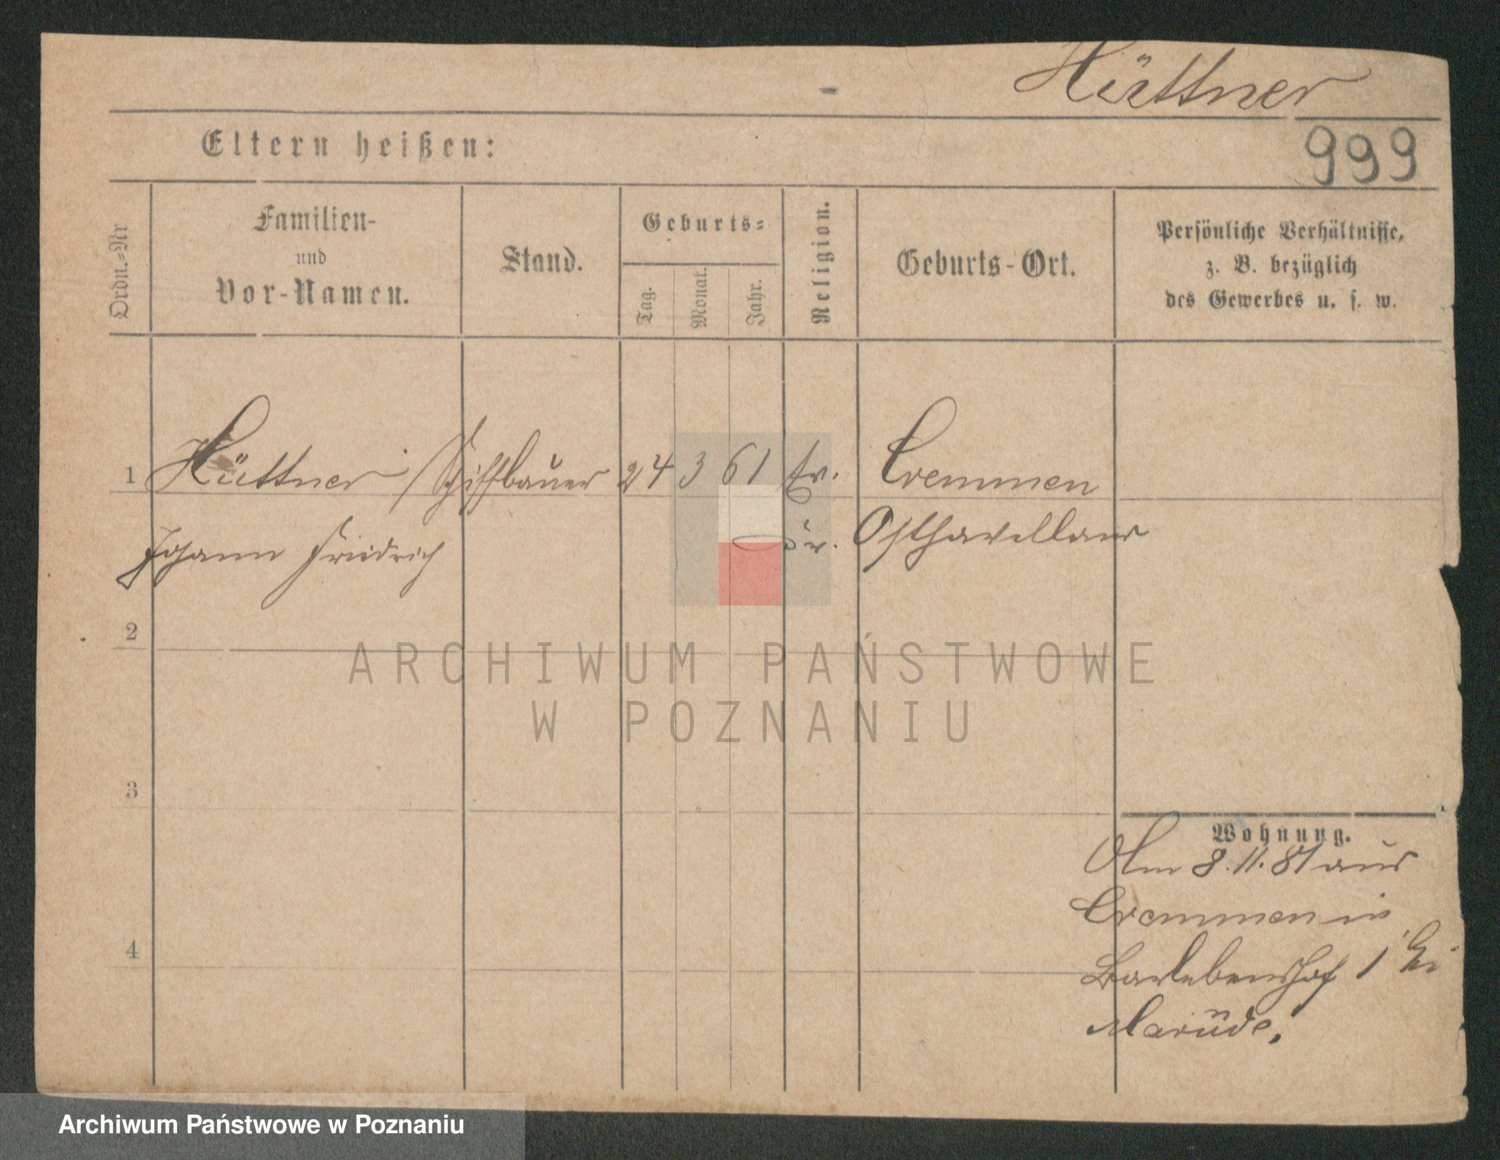 Hüttner
Eltern heißen:
999
Ordn.-Nr
Familien-
und
Vor-Namen.
Stand.
Geburts-
Tag.
Monat.
Jahr.
Religion.
Geburts-Ort.
Persönliche Verhältnisse,
z. B. bezüglich
des Gewerbes u. s. w.
1 Hüttner Schiffbauer 24 3 61 Ev. Cremmen
Johann Friedrich Osthavelland
2
3
4
Wohnung.
Am 8.11.81 aus
Cremmen in
1 bei
ARCHIWUM PAŃSTWOWE
W POZNANIU
Archiwum Państwowe w Poznaniu